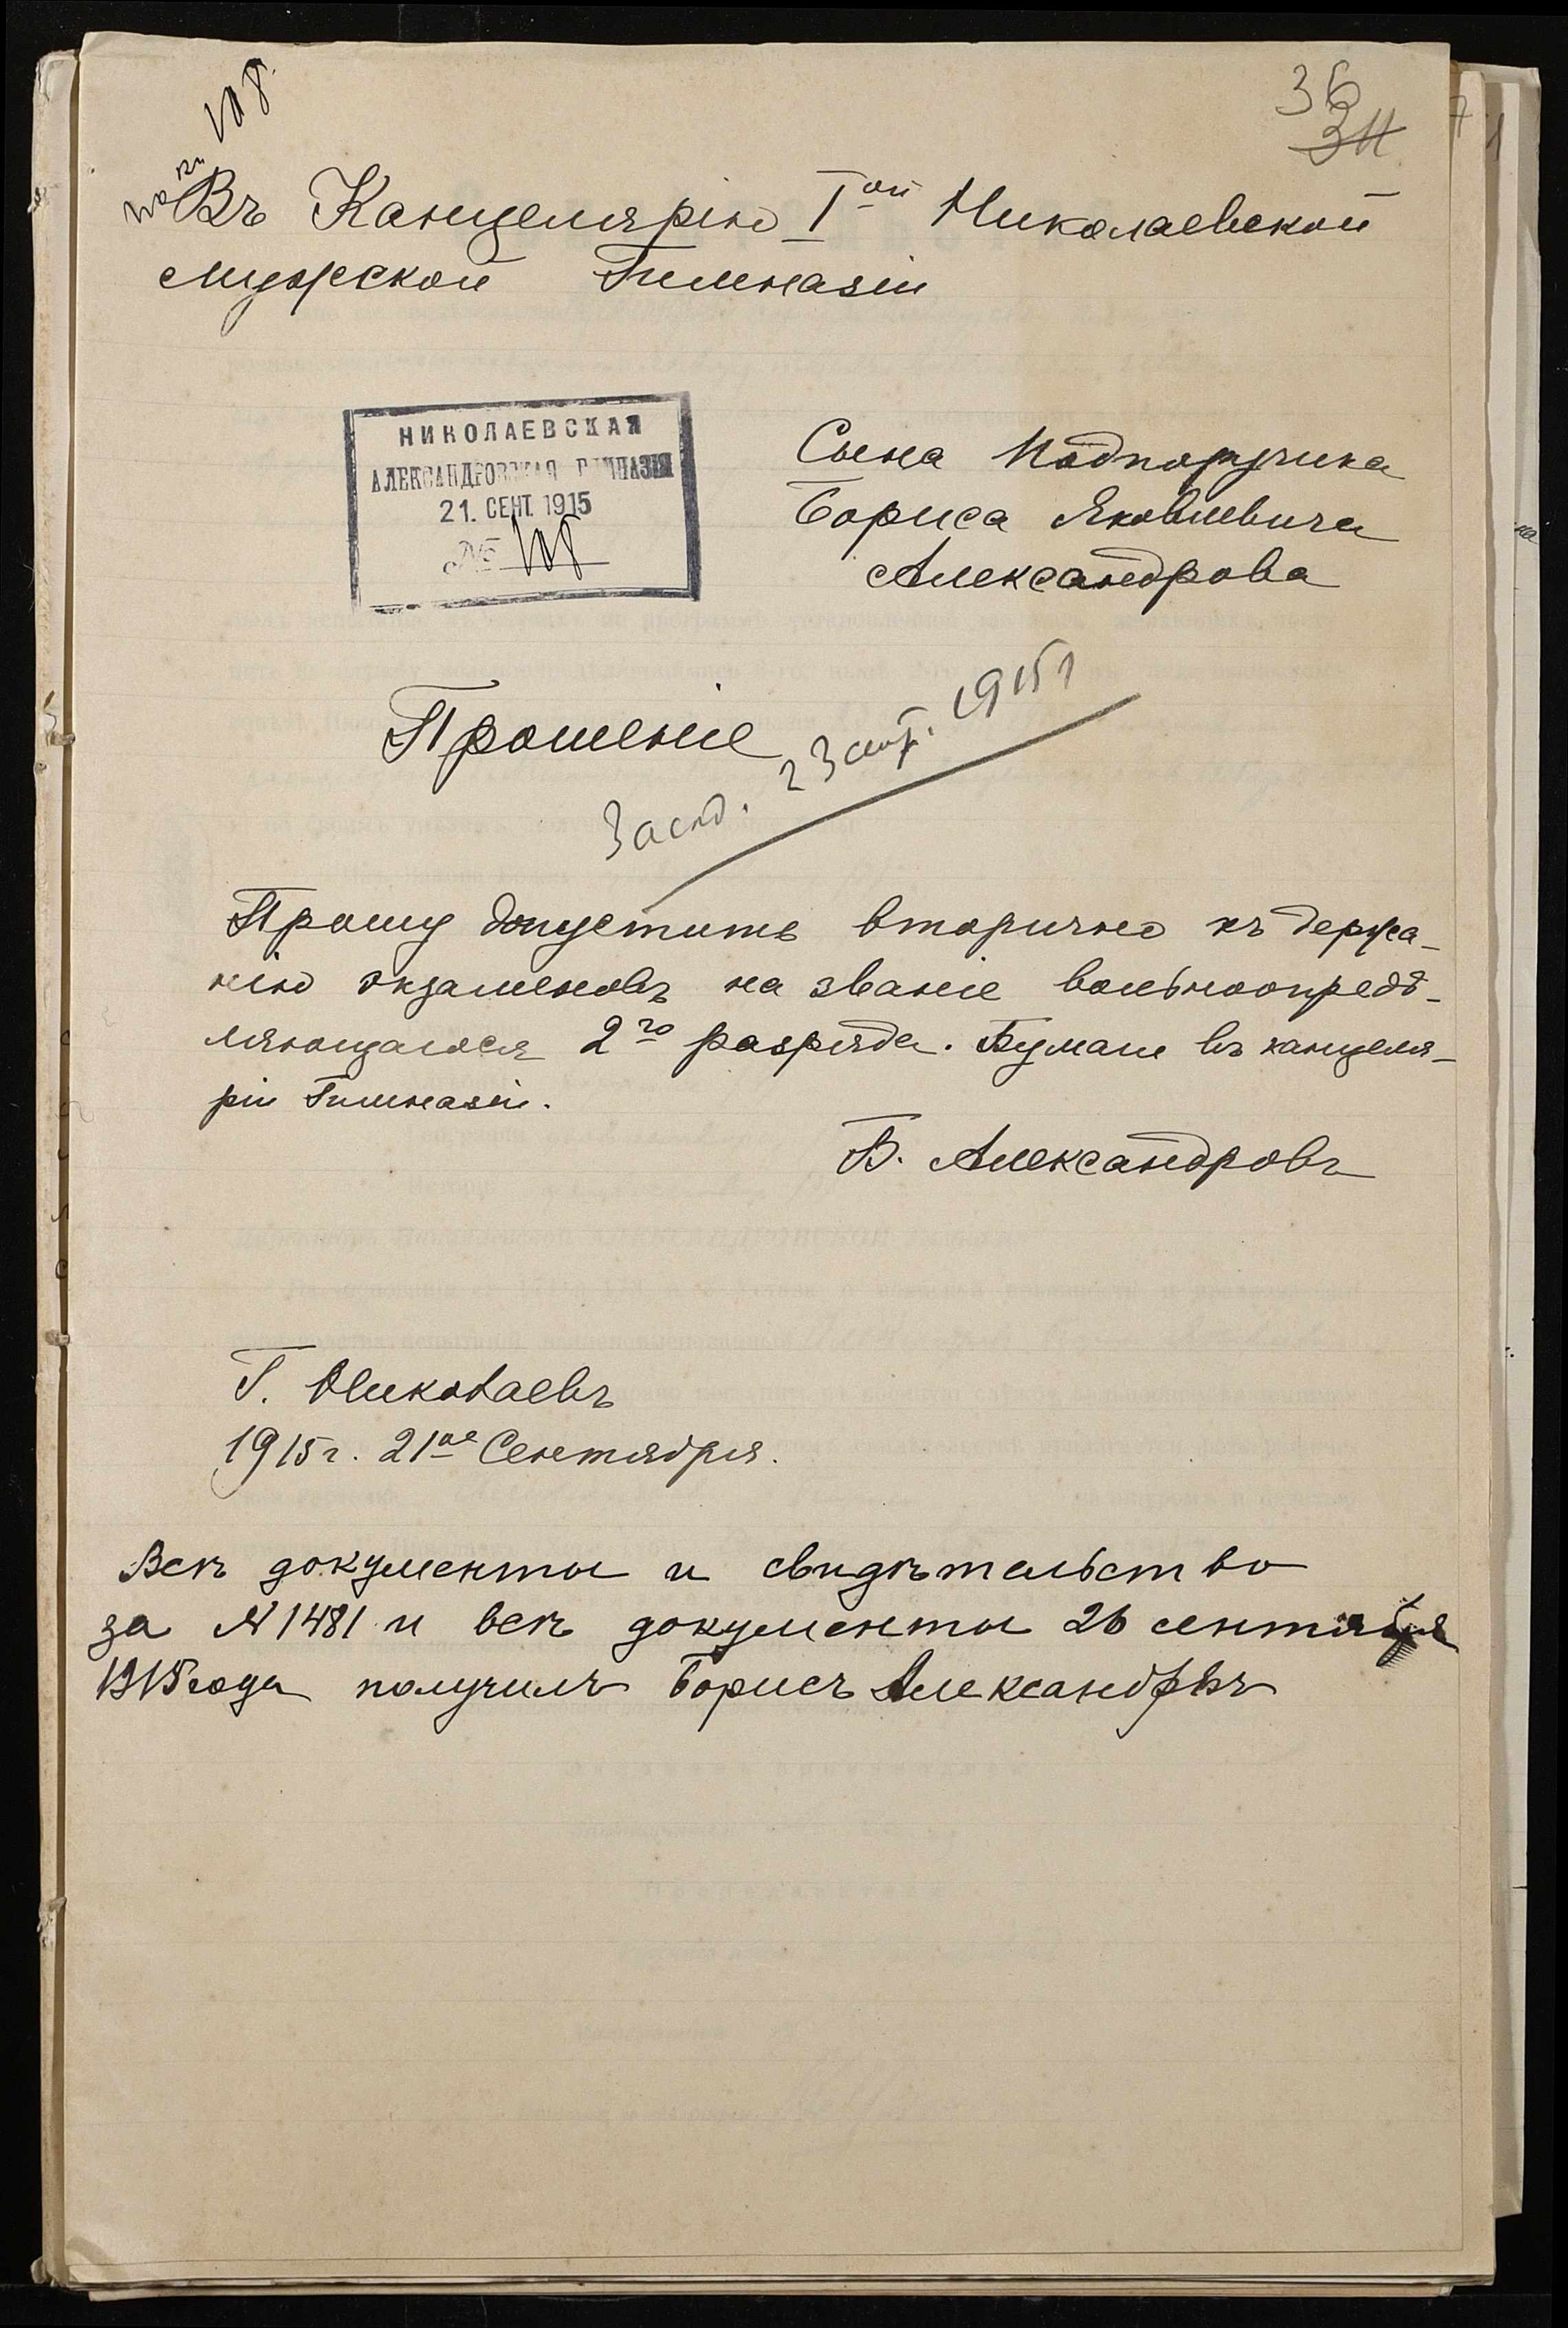 36
34
108
Въ Канцелярію Iой Николаевской
мужской Гимназіи
НИКОЛАЕВСКАЯ
АЛЕКСАНДРОВСКАЯ ГИМНАЗІЯ
21. СЕНТ. 1915
№ 108
Сына Подпоручика
Бориса Яковлевича
Александрова
Прошеніе
Засѣд. 23 сент. 1915 г
Прошу допустить вторично къ держа-
нію экзаменовъ на званіе вольноопредѣ-
ляющагося 2го разряда. Бумаги въ канцеля-
ріи Гимназіи.
Б. Александровъ
Г. Николаевъ
1915 г. 21ое Сентября.
Всѣ документы и свидѣтельство
за № 1481 и всѣ документы 26 сентября
1915 года получилъ Борисъ Александровъ